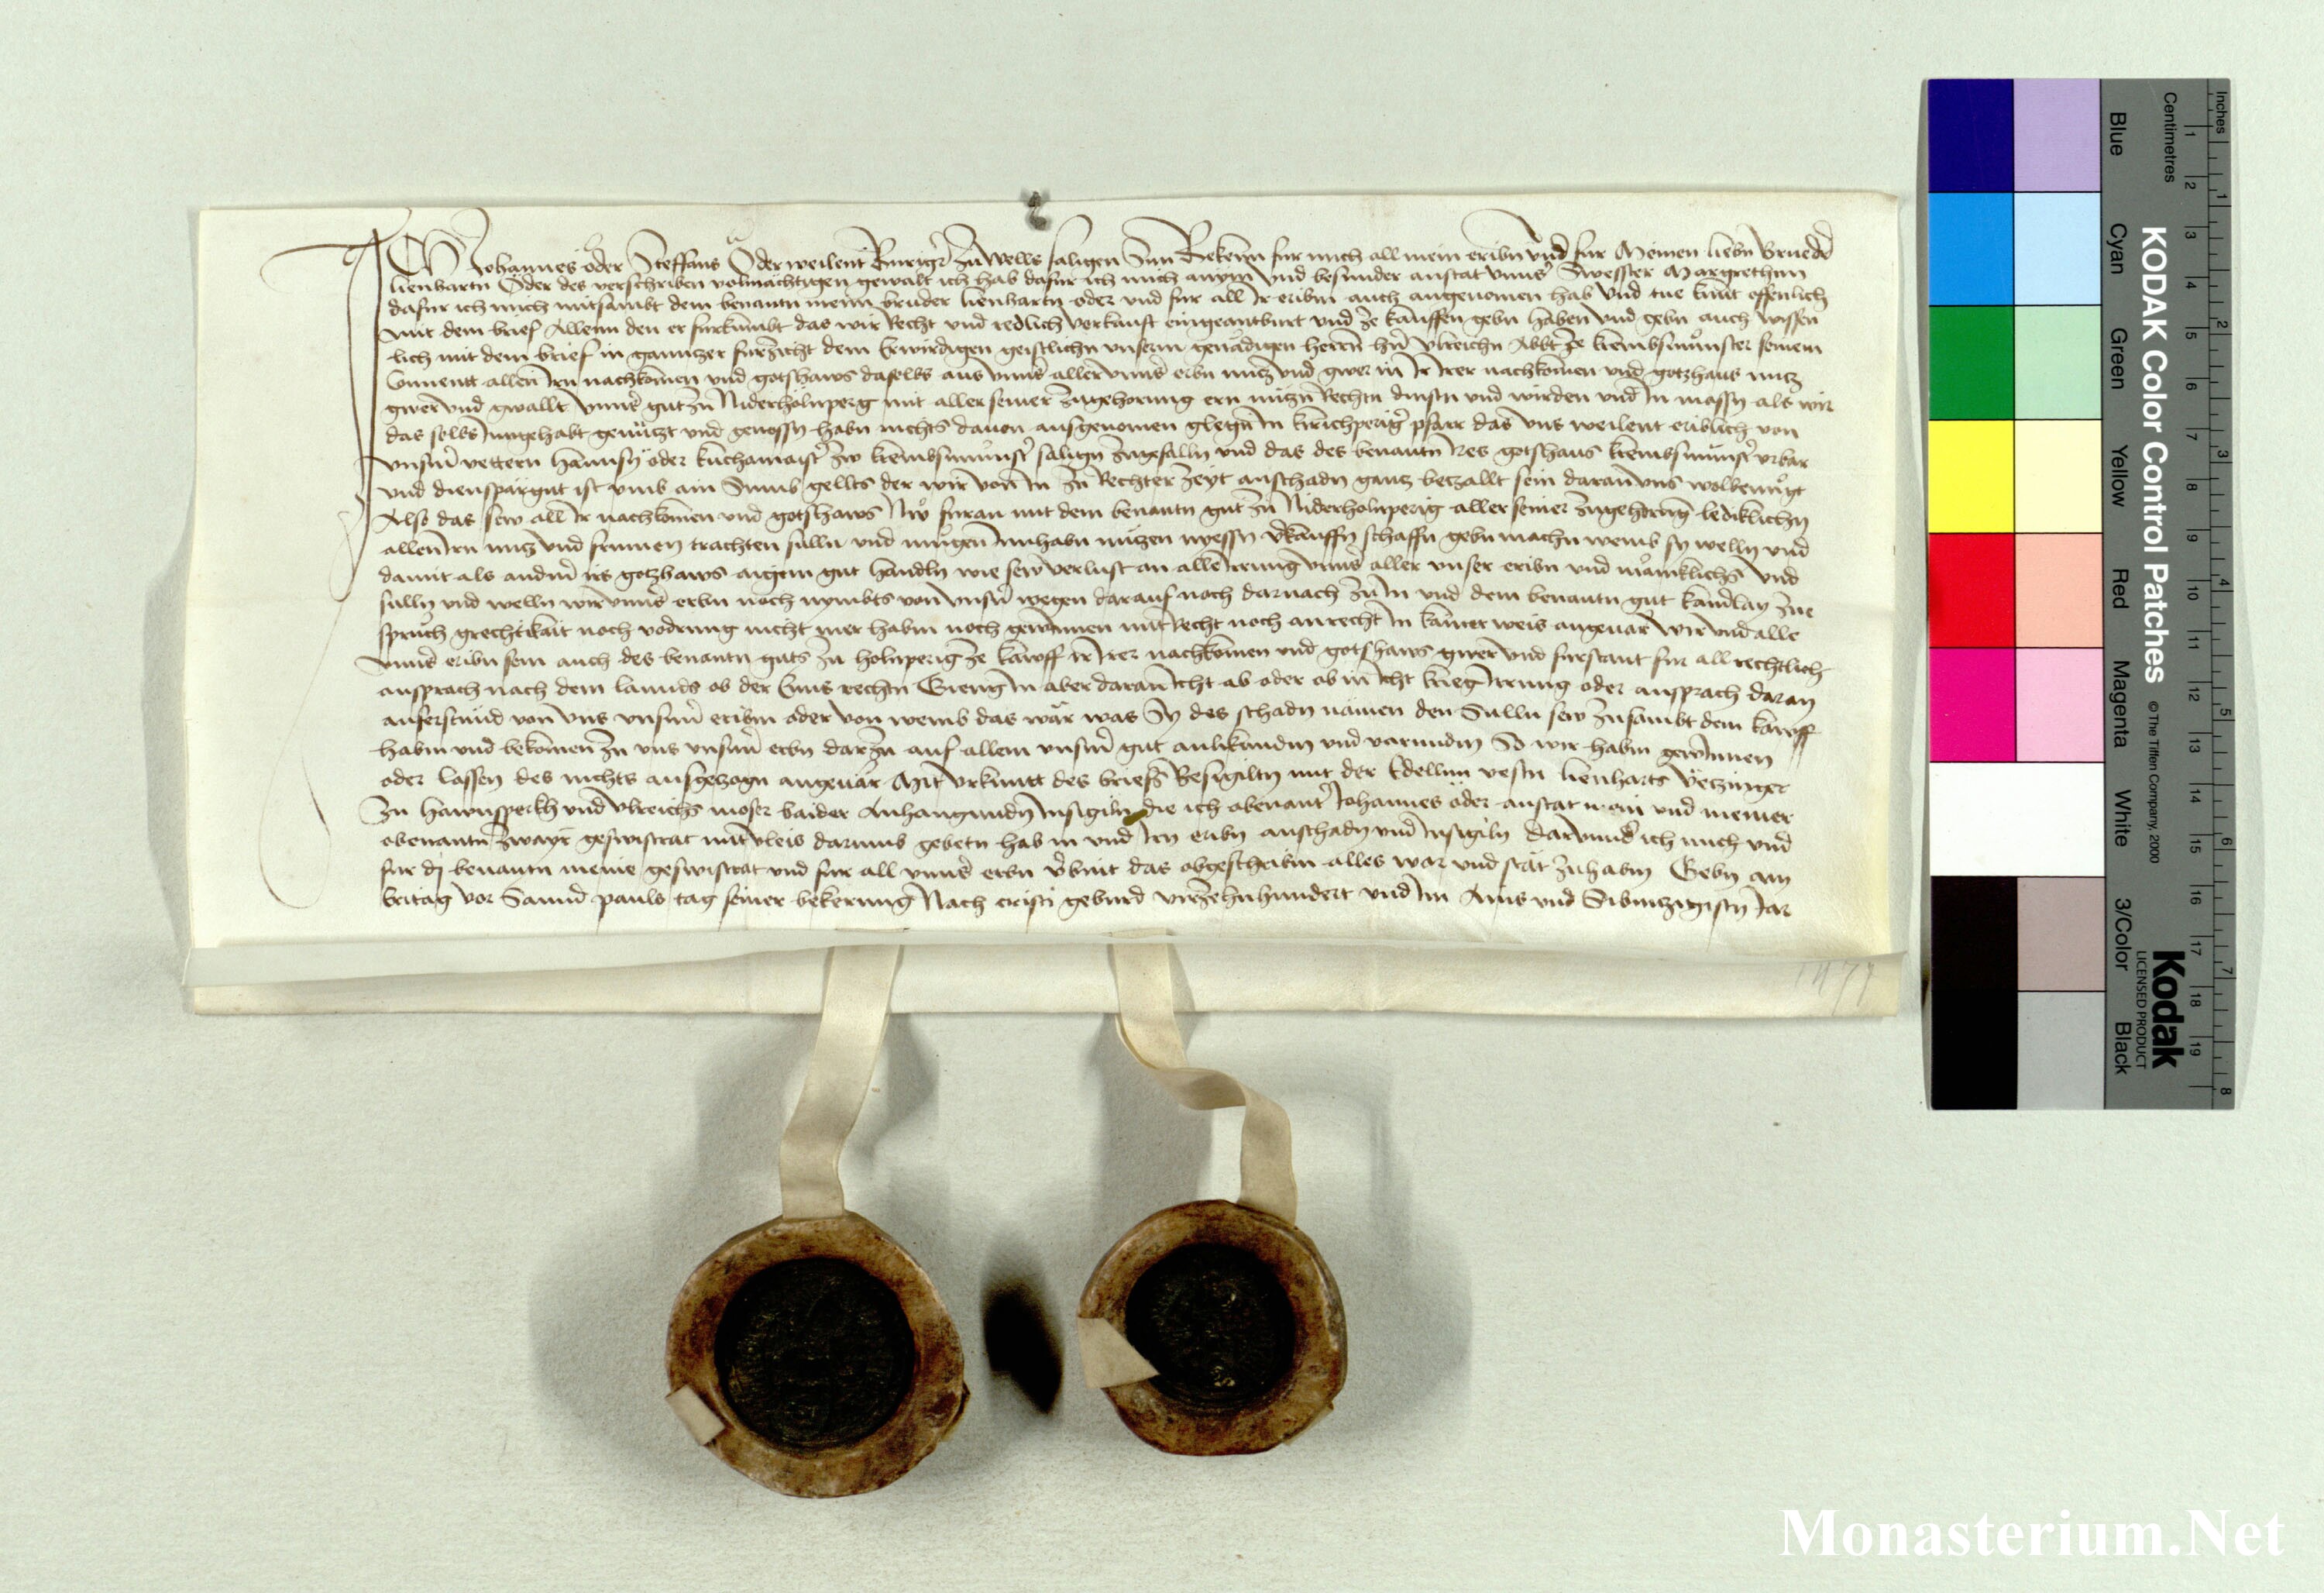 Ich Johannes öder Steffans Öder weilent Burigr zu Wells saligen Sun Bekenn fur mich all mein eribn und fur Meinen liebn Brueder
lienhartn Öder des verschriben volmächtigen gewalt ich hab dafur ich mich annym und besunder anstat unns Swesster Margrethen
dafur ich mich mitsambt dem benantn meim bruder lienhartn öder und fur all Ir eribm auch angenomen hab und tue kunt offenlich
mit dem brief Allenn den er furkumbt das wir Recht und redlich verkauft eingeantburt und ze kauffen gebn haben und gebn auch wissen
lich mit dem brief in ganntzer furzicht dem Erwirdigen geistlichn unserm genadigen herrn hrn Ulreichn Abbt ze krembsmunster seinem
Conuentt allen irn nachkomen und gotshaws daselbs aus unns aller unns erbn nutz und gwer in Ir Irer nachkomen und gotzhaus nutz
gwer und gwallt unns gut zu Niderholnperg mit aller seiner zugehorung ern nutzn Rechtn dinstn und wirden und In massn als wir
das selbs Inngehabt genützt und genossn habn nichts dauon ausgenomen glegn In kirichperigr pfarr das uns weilent eriblich von
unsern vettern hannsn öder kuchamaistr zw krembsmunstr salign zugefalln und das des benantn Irs gotshaus krembsmunstr urbar
und dienspargut ist umb ain Sumb gellts der wir von In zu Rechter zeyt anschadn gantz betzallt sein daran uns wolbenugt
Also das sew all Ir nachkomen und gotshaws Nw furan mit dem benantn gut zu Niderholnperig aller seiner zugehorung lediklichn
allen irn nutz und frumen trachten sulln und mugen Innhabn nutzen nyessn vkauffn schaffn gebn machn wemb sy welln und
damit als andern irs gotzhaws aigem gut handln wie sew verlust an alle Irrung unns aller unser eribn und mänklichs und
sulln und welln wir unns erbn noch nymbts von unsern wegen darauf noch darnach zu In und dem benantn gut kandlay zue
spruch grechtikait noch vodrung nicht mer habm noch gewinnen mit Recht noch anrecht In kainer weis angeuär Wir und alle
unns eribn sein auch des benantn guts zu holnperig ze kawff Ir Irer nachkomen und gotshaws gwer und furstant fur all rechtlich
ansprach nach dem lannds ob der Enns rechtn Gieng In aber daran icht ab oder ob in icht krieg Irrung oder ansprach daran
auferstund von uns unsern eribm oder von wemb das wär was Sy des schadn namen den Sulln sew zusambt dem kawff
habm und bekomen zu uns unsern erbn darzu auf allem unserm gut anligundm und varundm So wir habm gewinnen
oder lassen des nichts ausgezogn angeuär Mit urkunt des briefs Besigiltn mit der Edellnn vestn lienharts vetzinger
zu hawnsperkh und Ulreichs moser baider Anhangundn Insigiln die ich obenant Johannes öder anstat mein und meiner
obenantn zwayr geswistrat mit vleis darumb gebetn hab in und Irn eribn anschadn und Insigiln Darundr ich mich und
fur dy benantn meine geswistrat und fur all unns erbn vbint das obgeschribm alles war und stät zuhabm Gebn am
britag vor Sannd pauls tag seiner bekerung Nach cristi geburd virzehnhundert und Im Ains und Sibmtzigistn Jar
1471
Monasterium.Net
KODAK Color Control Patches
© The Tiffen Company, 2000
Kodak
LICENSED PRODUCT
Blue
Cyan
Green
Yellow
Red
Magenta
White
3/Color
Black
Inches
1 2 3 4 5 6 7 8
Centimetres
1 2 3 4 5 6 7 8 9 10 11 12 13 14 15 16 17 18 19